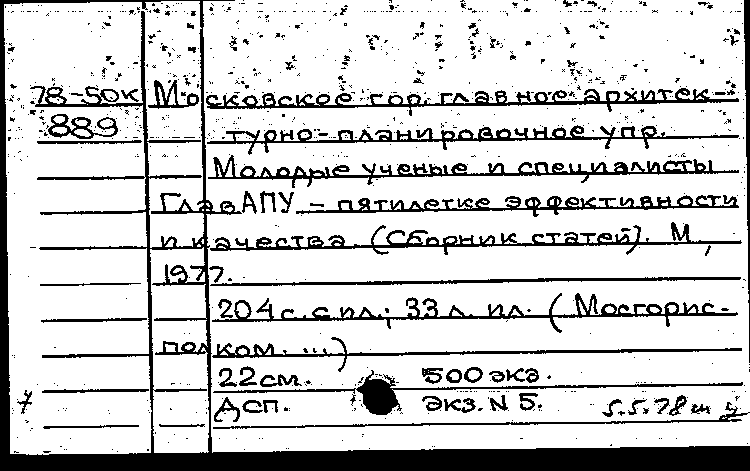 78-50к Московское гор. главное архитек-
889 турно-планировочное упр.
Молодые ученые и специалисты
ГлавАПУ - пятилетке эффективности
и качества (Сборник статей). М,
1977.
204 с. с ил.; 33 л. ил. (Мосгорис-
полком. ...)
22 см. 500 экз.
Дсп. экз. N 5. 5.5.78